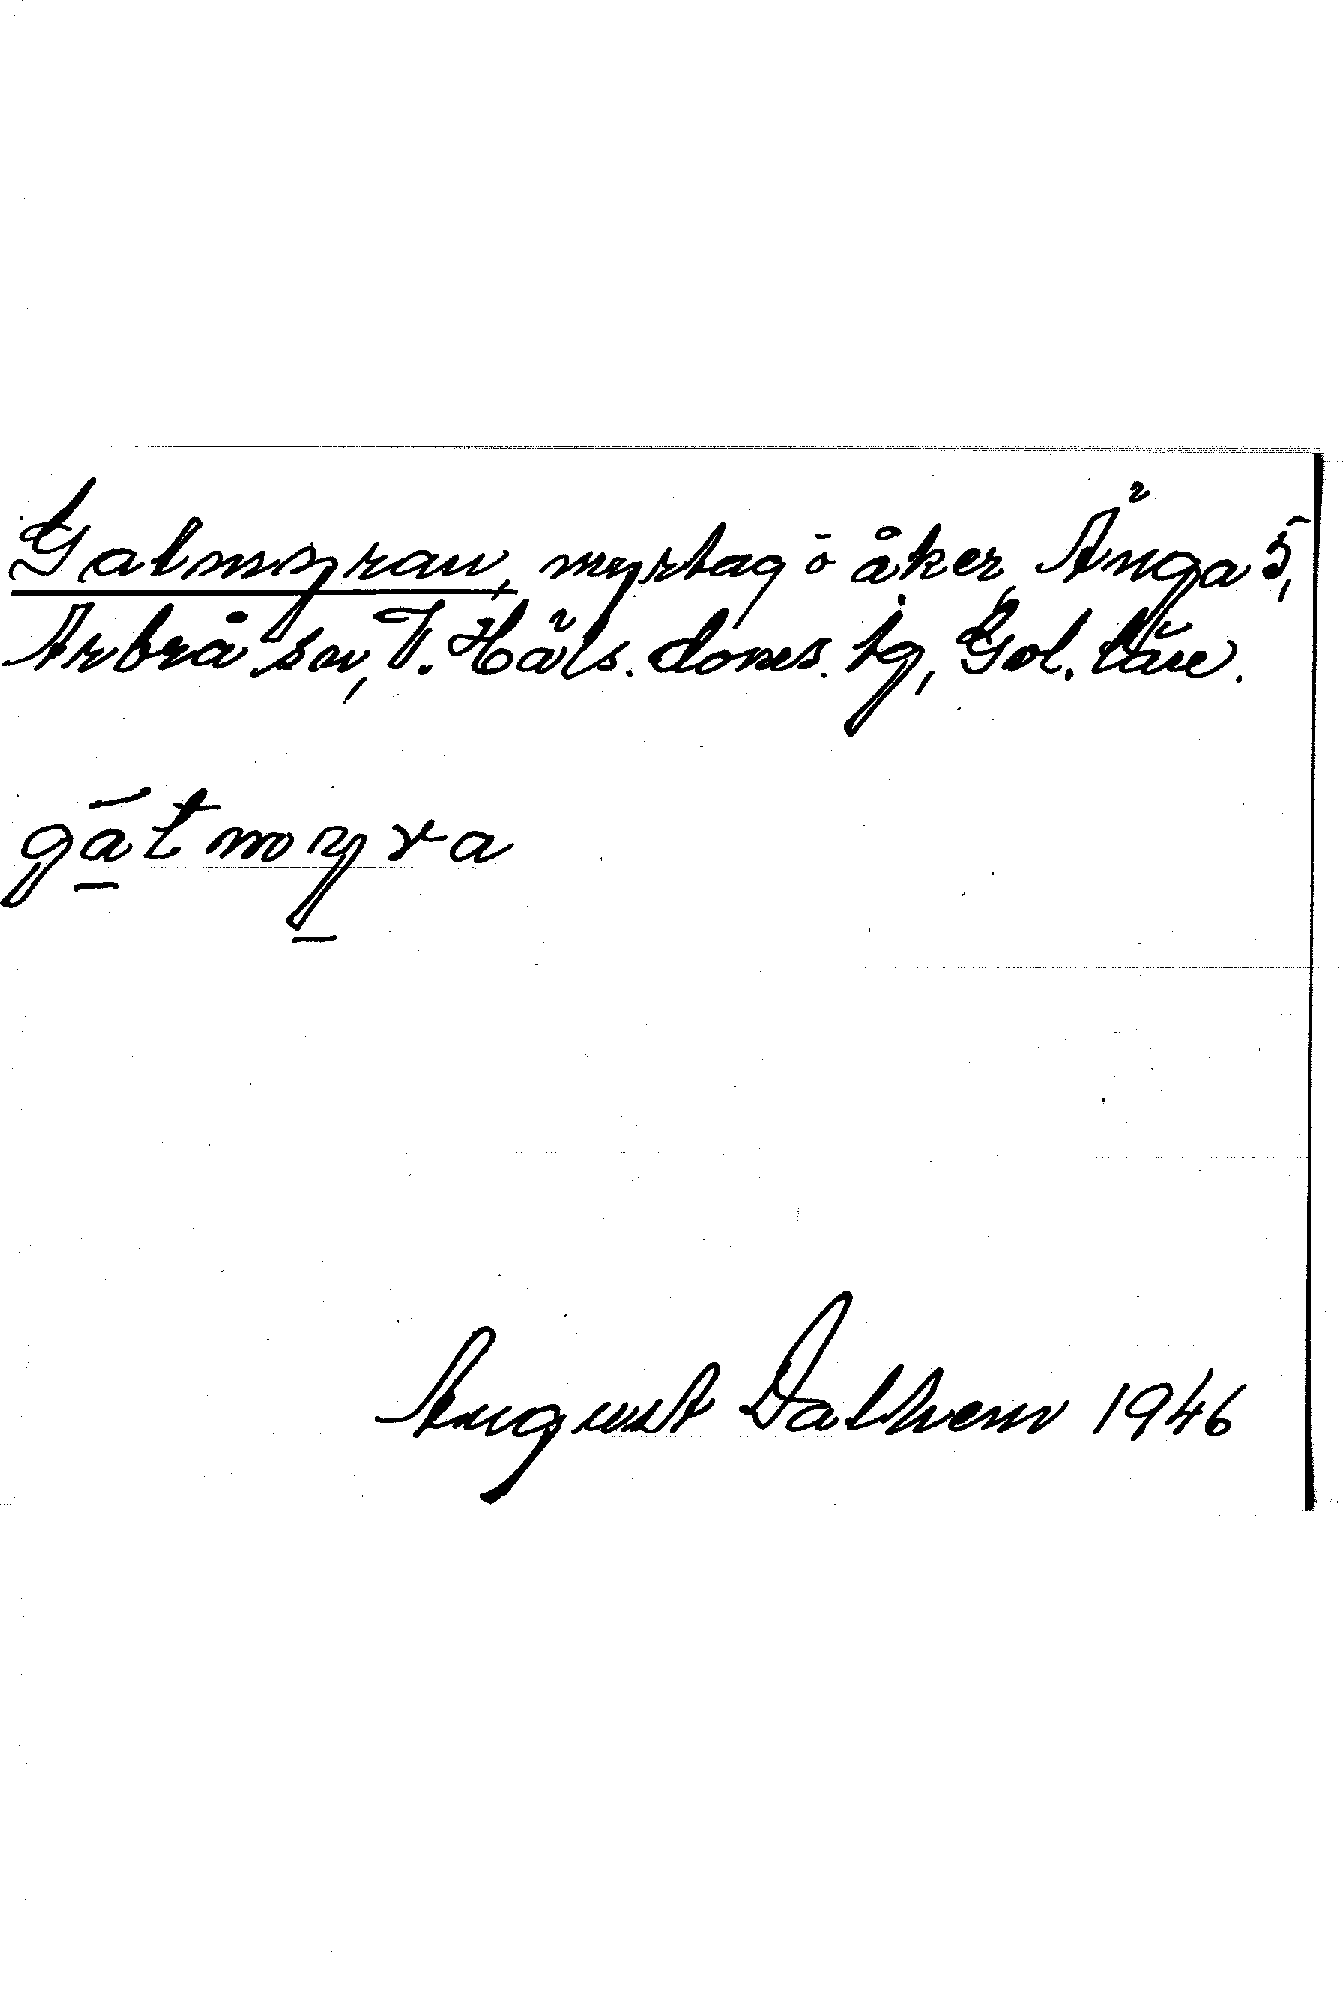 Galmyran, myrtag o åker, Änga 5,
Arbrå sn, V. Häls. doms. tg, Gol. län.
gatmyra
August Dalhem 1946